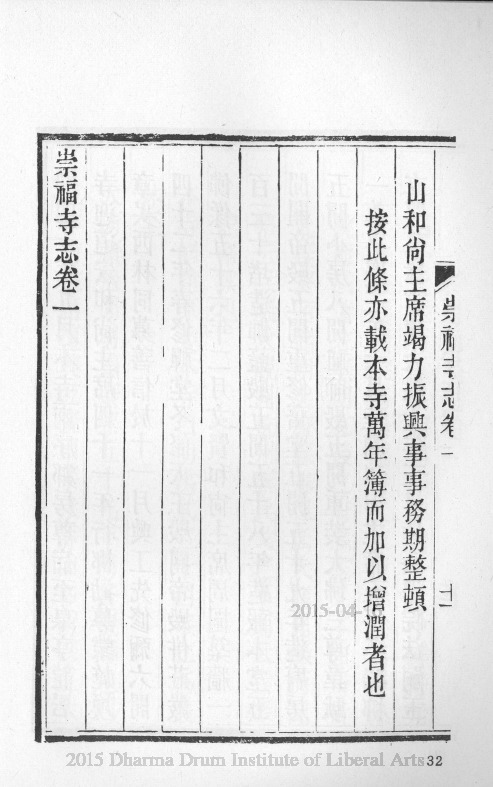 崇福寺志卷一
十一
山和尙主席竭力振興事事務期整頓
按此條亦載本寺萬年簿而加以增潤者也
崇福寺志卷一
2015-04-
2015 Dharma Drum Institute of Liberal Arts
32